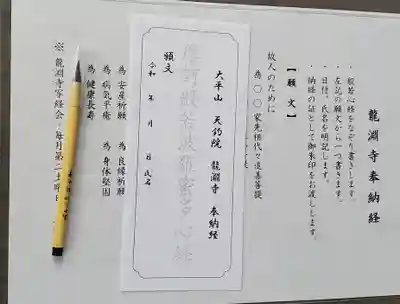 龍淵寺奉納経
・般若心経をなぞり書きします。
・左記の願文から一つ書きます。
・日付、氏名を明記します。
・納経の証として御朱印をお渡しします。
【願文】
故人のために
為〇〇家先祖代々追善菩提
太平山 天釣院 龍淵寺 奉納経
摩訶般若波羅蜜多心経
願文
令和 年 月 日 氏名
為 良縁祈願
為 身体堅固
為 安産祈願
為 病気平癒
為 健康長寿
※ 龍淵寺写経会・毎月第二土曜日